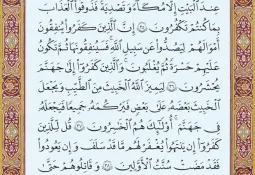 عِندَ ٱلۡبَيۡتِ إِلَّا مُكَآءٗ وَتَصۡدِيَةٗۚ فَذُوقُواْ ٱلۡعَذَابَ
بِمَا كُنتُمۡ تَكۡفُرُونَ ۝ إِنَّ ٱلَّذِينَ كَفَرُواْ يُنفِقُونَ
أَمۡوَٰلَهُمۡ لِيَصُدُّواْ عَن سَبِيلِ ٱللَّهِۚ فَسَيُنفِقُونَهَا ثُمَّ تَكُونُ
عَلَيۡهِمۡ حَسۡرَةٗ ثُمَّ يُغۡلَبُونَۗ وَٱلَّذِينَ كَفَرُوٓاْ إِلَىٰ جَهَنَّمَ
يُحۡشَرُونَ ۝ لِيَمِيزَ ٱللَّهُ ٱلۡخَبِيثَ مِنَ ٱلطَّيِّبِ وَيَجۡعَلَ
ٱلۡخَبِيثَ بَعۡضَهُۥ عَلَىٰ بَعۡضٖ فَيَرۡكُمَهُۥ جَمِيعٗا فَيَجۡعَلَهُۥ
فِي جَهَنَّمَۚ أُوْلَٰٓئِكَ هُمُ ٱلۡخَٰسِرُونَ ۝ قُل لِّلَّذِينَ
كَفَرُوٓاْ إِن يَنتَهُواْ يُغۡفَرۡ لَهُم مَّا قَدۡ سَلَفَ وَإِن يَعُودُواْ
فَقَدۡ مَضَتۡ سُنَّتُ ٱلۡأَوَّلِينَ ۝ وَقَٰتِلُوهُمۡ حَتَّىٰ